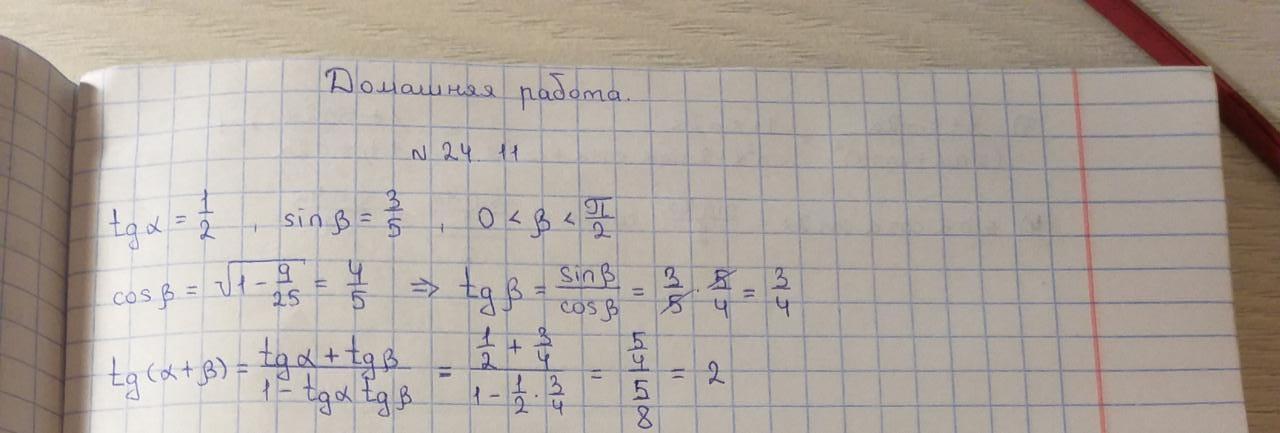 Домашняя работа.
N 24.11
tg α = 1/2 , sin β = 3/5 , 0 < β < π/2
cos β = √(1 - 9/25) = 4/5 ⇒ tg β = sin β/cos β = 3/5 · 5/4 = 3/4
tg (α + β) = (tg α + tg β)/(1 - tg α tg β) = (1/2 + 3/4)/(1 - 1/2 · 3/4) = (5/4)/(5/8) = 2